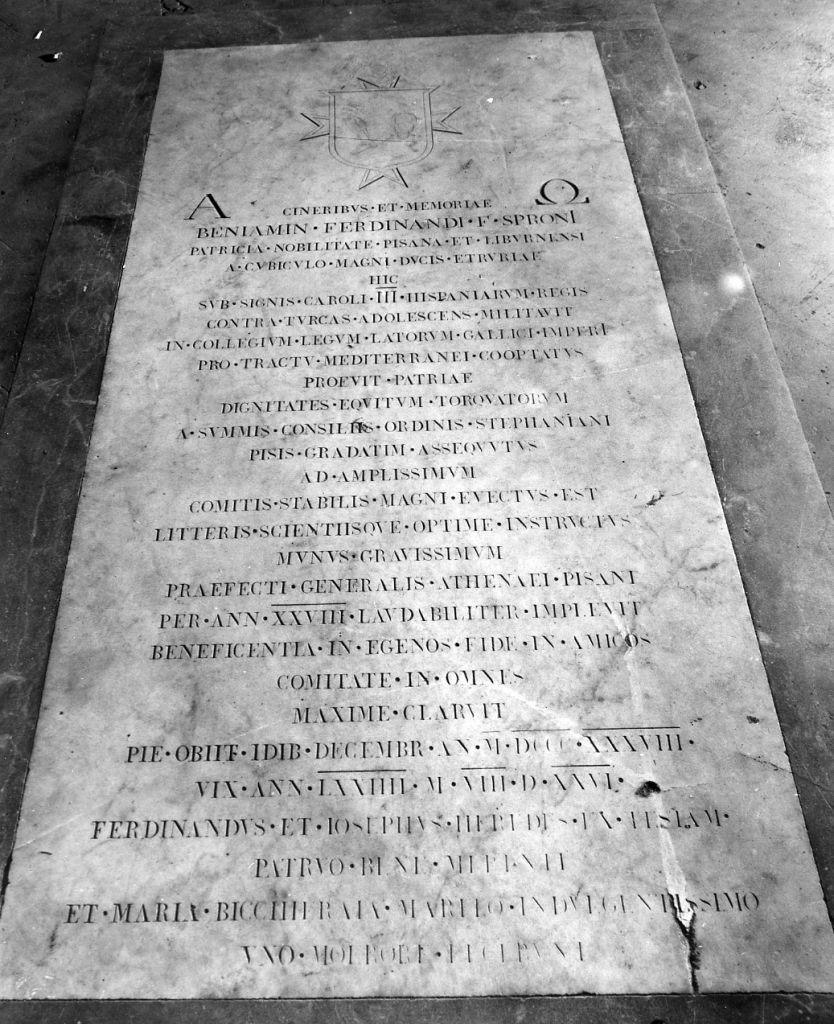 Α Ω
CINERIBVS · ET · MEMORIAE
BENIAMIN · FERDINANDI · F · SPRONI
PATRICIA · NOBILITATE · PISANA · ET · LIBVRNENSI
A · CVBICVLO · MAGNI · DVCIS · ETRVRIAE
HIC
SVB · SIGNIS · CAROLI · III · HISPANIARVM · REGIS
CONTRA · TVRCAS · ADOLESCENS · MILITAVIT
IN · COLLEGIVM · LEGVM · LATORVM · GALLICI · IMPERI
PRO · TRACTV · MEDITERRANEI · COOPTATVS
PROFVIT · PATRIAE
DIGNITATES · EQVITVM · TORQVATORVM
A · SVMMIS · CONSILIIS · ORDINIS · STEPHANIANI
PISIS · GRADATIM · ASSEQVVTVS
AD · AMPLISSIMVM
COMITIS · STABILIS · MAGNI · EVECTVS · EST
LITTERIS · SCIENTIISQVE · OPTIME · INSTRVCTVS
MVNVS · GRAVISSIMVM
PRAEFECTI · GENERALIS · ATHENAEI · PISANI
PER · ANN · XXVIII · LAVDABILITER · IMPLEVIT
BENEFICENTIA · IN · EGENOS · FIDE · IN · AMICOS
COMITATE · IN · OMNES
MAXIME · CLARVIT
PIE · OBIIT · IDIB · DECEMBR · AN · M · DCCC · XXXVIII ·
VIX · ANN · LXXIIII · M · VIII · D · XXVI ·
FERDINANDVS · ET · IOSEPHVS · HEREDES · EX · TESTAM ·
PATRVO · BENE · MERENTI
ET · MARIA · BICCHIERAIA · MARITO · INDVLGENTISSIMO
VNO · MOERORE · FECERVNT